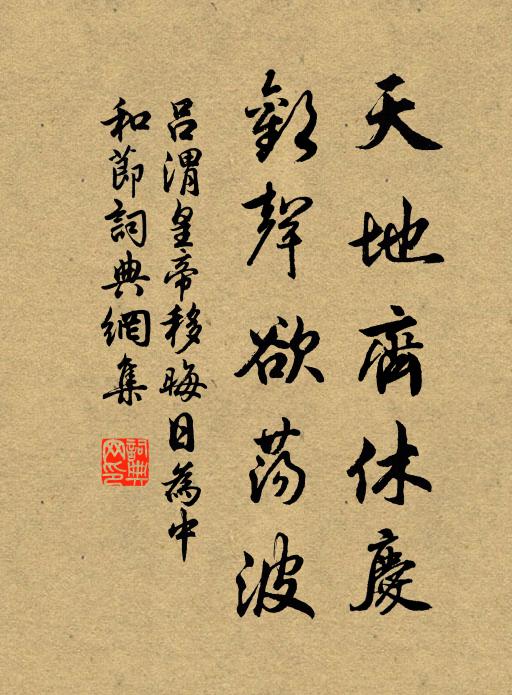 天地齊休慶
歡聲欲蕩波
吕渭皇帝移晦日為中
和節詞典網集
詞典網印